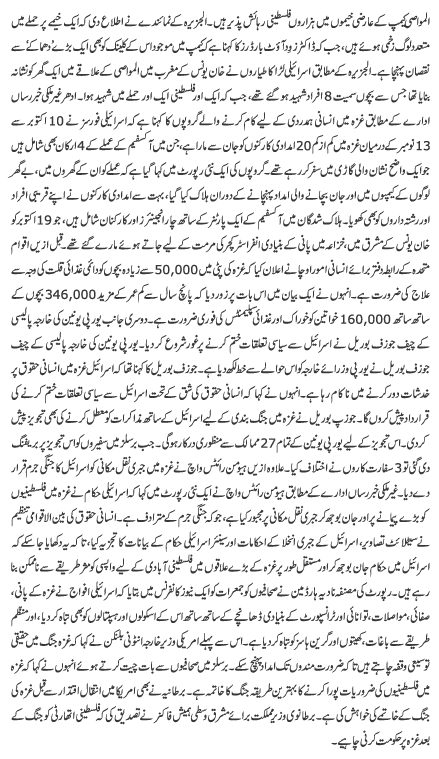 المواصی کیمپ کے عارضی خیموں میں ہزاروں فلسطینی رہائش پذیر ہیں۔ الجزیرہ کے نمائندے نے اطلاع دی کہ ایک خیمے پر حملے میں
متعدد لوگ زخمی ہوئے ہیں، جب کہ ڈاکٹرز ود آؤٹ بارڈرز کا کہنا ہے کہ کیمپ میں موجود اس کے کلینک کو بھی ایک بڑے دھماکے سے
نقصان پہنچا ہے۔ الجزیرہ کے مطابق اسرائیلی لڑاکا طیاروں نے خان یونس کے مغرب میں المواصی کے علاقے میں ایک گھر کو نشانہ
بنایا جس سے بچوں سمیت 8 افراد شہید ہو گئے تھے، جب کہ ایک اور فلسطینی ایک اور حملے میں شہید ہوا۔ ادھر غیر ملکی خبر رساں
ادارے کے مطابق غزہ میں انسانی ہمدردی کے لیے کام کرنے والے گروپوں کا کہنا ہے کہ اسرائیلی فورسز نے 10 اکتوبر سے
13 نومبر کے درمیان غزہ میں کم از کم 20 امدادی کارکنوں کو جان سے مارا ہے، جن میں آکسفیم کے عملے کے 4 ارکان بھی شامل ہیں
جو ایک واضح نشان والی گاڑی میں سفر کر رہے تھے۔ گروپوں کی ایک نئی رپورٹ میں کہا گیا ہے کہ عملے کو ان کے گھروں میں، بے گھر
لوگوں کے کیمپوں میں اور جان بچانے والی امداد پہنچانے کے دوران ہلاک کیا گیا، بہت سے امدادی کارکنوں نے اپنے قریبی افراد
اور رشتہ داروں کو بھی کھویا۔ ہلاک شدگان میں آکسفیم کے ایک پارٹنر کے ساتھ چار انجینئرز اور کارکنان شامل ہیں، جو 19 اکتوبر کو
خان یونس کے مشرق میں، خزاعہ میں پانی کے بنیادی انفرا اسٹرکچر کی مرمت کے لیے جاتے ہوئے مارے گئے تھے۔ قبل ازیں اقوام
متحدہ کے رابطہ دفتر برائے انسانی امور اوچا نے اعلان کیا کہ غزہ کی پٹی میں 50,000 سے زیادہ بچوں کو دائمی غذائی قلت کی وجہ سے
علاج کی ضرورت ہے۔ انہوں نے ایک بیان میں اس بات پر زور دیا کہ پانچ سال سے کم عمر کے مزید 346,000 بچوں کے
ساتھ ساتھ 160,000 خواتین کو خوراک اور غذائی سپلیمنٹس کی فوری ضرورت ہے۔ دوسری جانب یورپی یونین کی خارجہ پالیسی
کے چیف جوزف بوریل نے اسرائیل سے سیاسی تعلقات ختم کرنے پر غور شروع کر دیا۔ یورپی یونین کی خارجہ پالیسی کے چیف
جوزف بوریل نے یورپی وزرائے خارجہ کو اس حوالے سے خط لکھ دیا ہے۔ جوزف بوریل کا کہنا تھا کہ اسرائیل غزہ میں انسانی حقوق پر
خدشات دور کرنے میں ناکام رہا ہے۔ انہوں نے کہا کہ انسانی حقوق کی شق کے تحت اسرائیل سے سیاسی تعلقات ختم کرنے کی
قرارداد پیش کروں گا۔ جوزپ بوریل نے غزہ میں جنگ بندی کے لیے اسرائیل کے ساتھ مذاکرات کو معطل کرنے کی بھی تجویز پیش
کر دی۔ اس تجویز کے لیے یورپی یونین کے تمام 27 ممالک سے منظوری درکار ہوگی۔ جب برسلز میں سفیروں کو اس تجویز پر بریفنگ
دی گئی تو 3 سفارت کاروں نے اختلاف کیا۔ علاوہ ازیں ہیومن رائٹس واچ نے غزہ میں جبری نقل مکانی کو اسرائیل کا جنگی جرم قرار
دے دیا۔ غیر ملکی خبر رساں ادارے کے مطابق ہیومن رائٹس واچ نے ایک نئی رپورٹ میں کہا کہ اسرائیلی حکام نے غزہ میں فلسطینیوں
کو بڑے پیمانے پر اور جان بوجھ کر جبری نقل مکانی پر مجبور کیا ہے، جو کہ جنگی جرم کے مترادف ہے۔ انسانی حقوق کی بین الاقوامی تنظیم
نے سیٹلائٹ تصاویر، اسرائیل کے جبری انخلا کے احکامات اور سینئر اسرائیلی حکام کے بیانات کا تجزیہ کیا، تاکہ یہ دکھایا جا سکے کہ
اسرائیل میں حکام جان بوجھ کر اور مستقل طور پر غزہ کے بڑے علاقوں میں فلسطینی آبادی کے لیے واپسی کو مؤثر طریقے سے ناممکن بنا
رہے ہیں۔ رپورٹ کی مصنفہ نادیہ ہارڈمین نے صحافیوں کو جمعرات کو ایک نیوز کانفرنس میں بتایا کہ اسرائیلی افواج نے غزہ کے پانی،
صفائی، مواصلات، توانائی اور ٹرانسپورٹ کے بنیادی ڈھانچے کے ساتھ ساتھ اس کے اسکولوں اور ہسپتالوں کو بھی تباہ کر دیا، اور منظم
طریقے سے باغات، کھیتوں اور گرین ہاؤسز کو تباہ کر دیا ہے۔ اس سے پہلے امریکی وزیر خارجہ انٹونی بلنکن نے کہا کہ غزہ میں حقیقی
توسیعی وقفہ چاہتے ہیں تاکہ ضرورت مندوں تک امداد پہنچ سکے۔ برسلز میں صحافیوں سے بات چیت کرتے ہوئے انہوں نے کہا کہ غزہ
میں فلسطینیوں کی ضروریات پورا کرنے کا بہترین طریقہ جنگ کا خاتمہ ہے۔ برطانیہ نے بھی امریکا میں انتقال اقتدار سے قبل غزہ کی
جنگ کے خاتمے کی خواہش کی ہے۔ برطانوی وزیر مملکت برائے مشرق وسطی ہمیش فاکنر نے تصدیق کی کہ فلسطینی اتھارٹی کو جنگ کے
بعد غزہ پر حکومت کرنی چاہیے۔